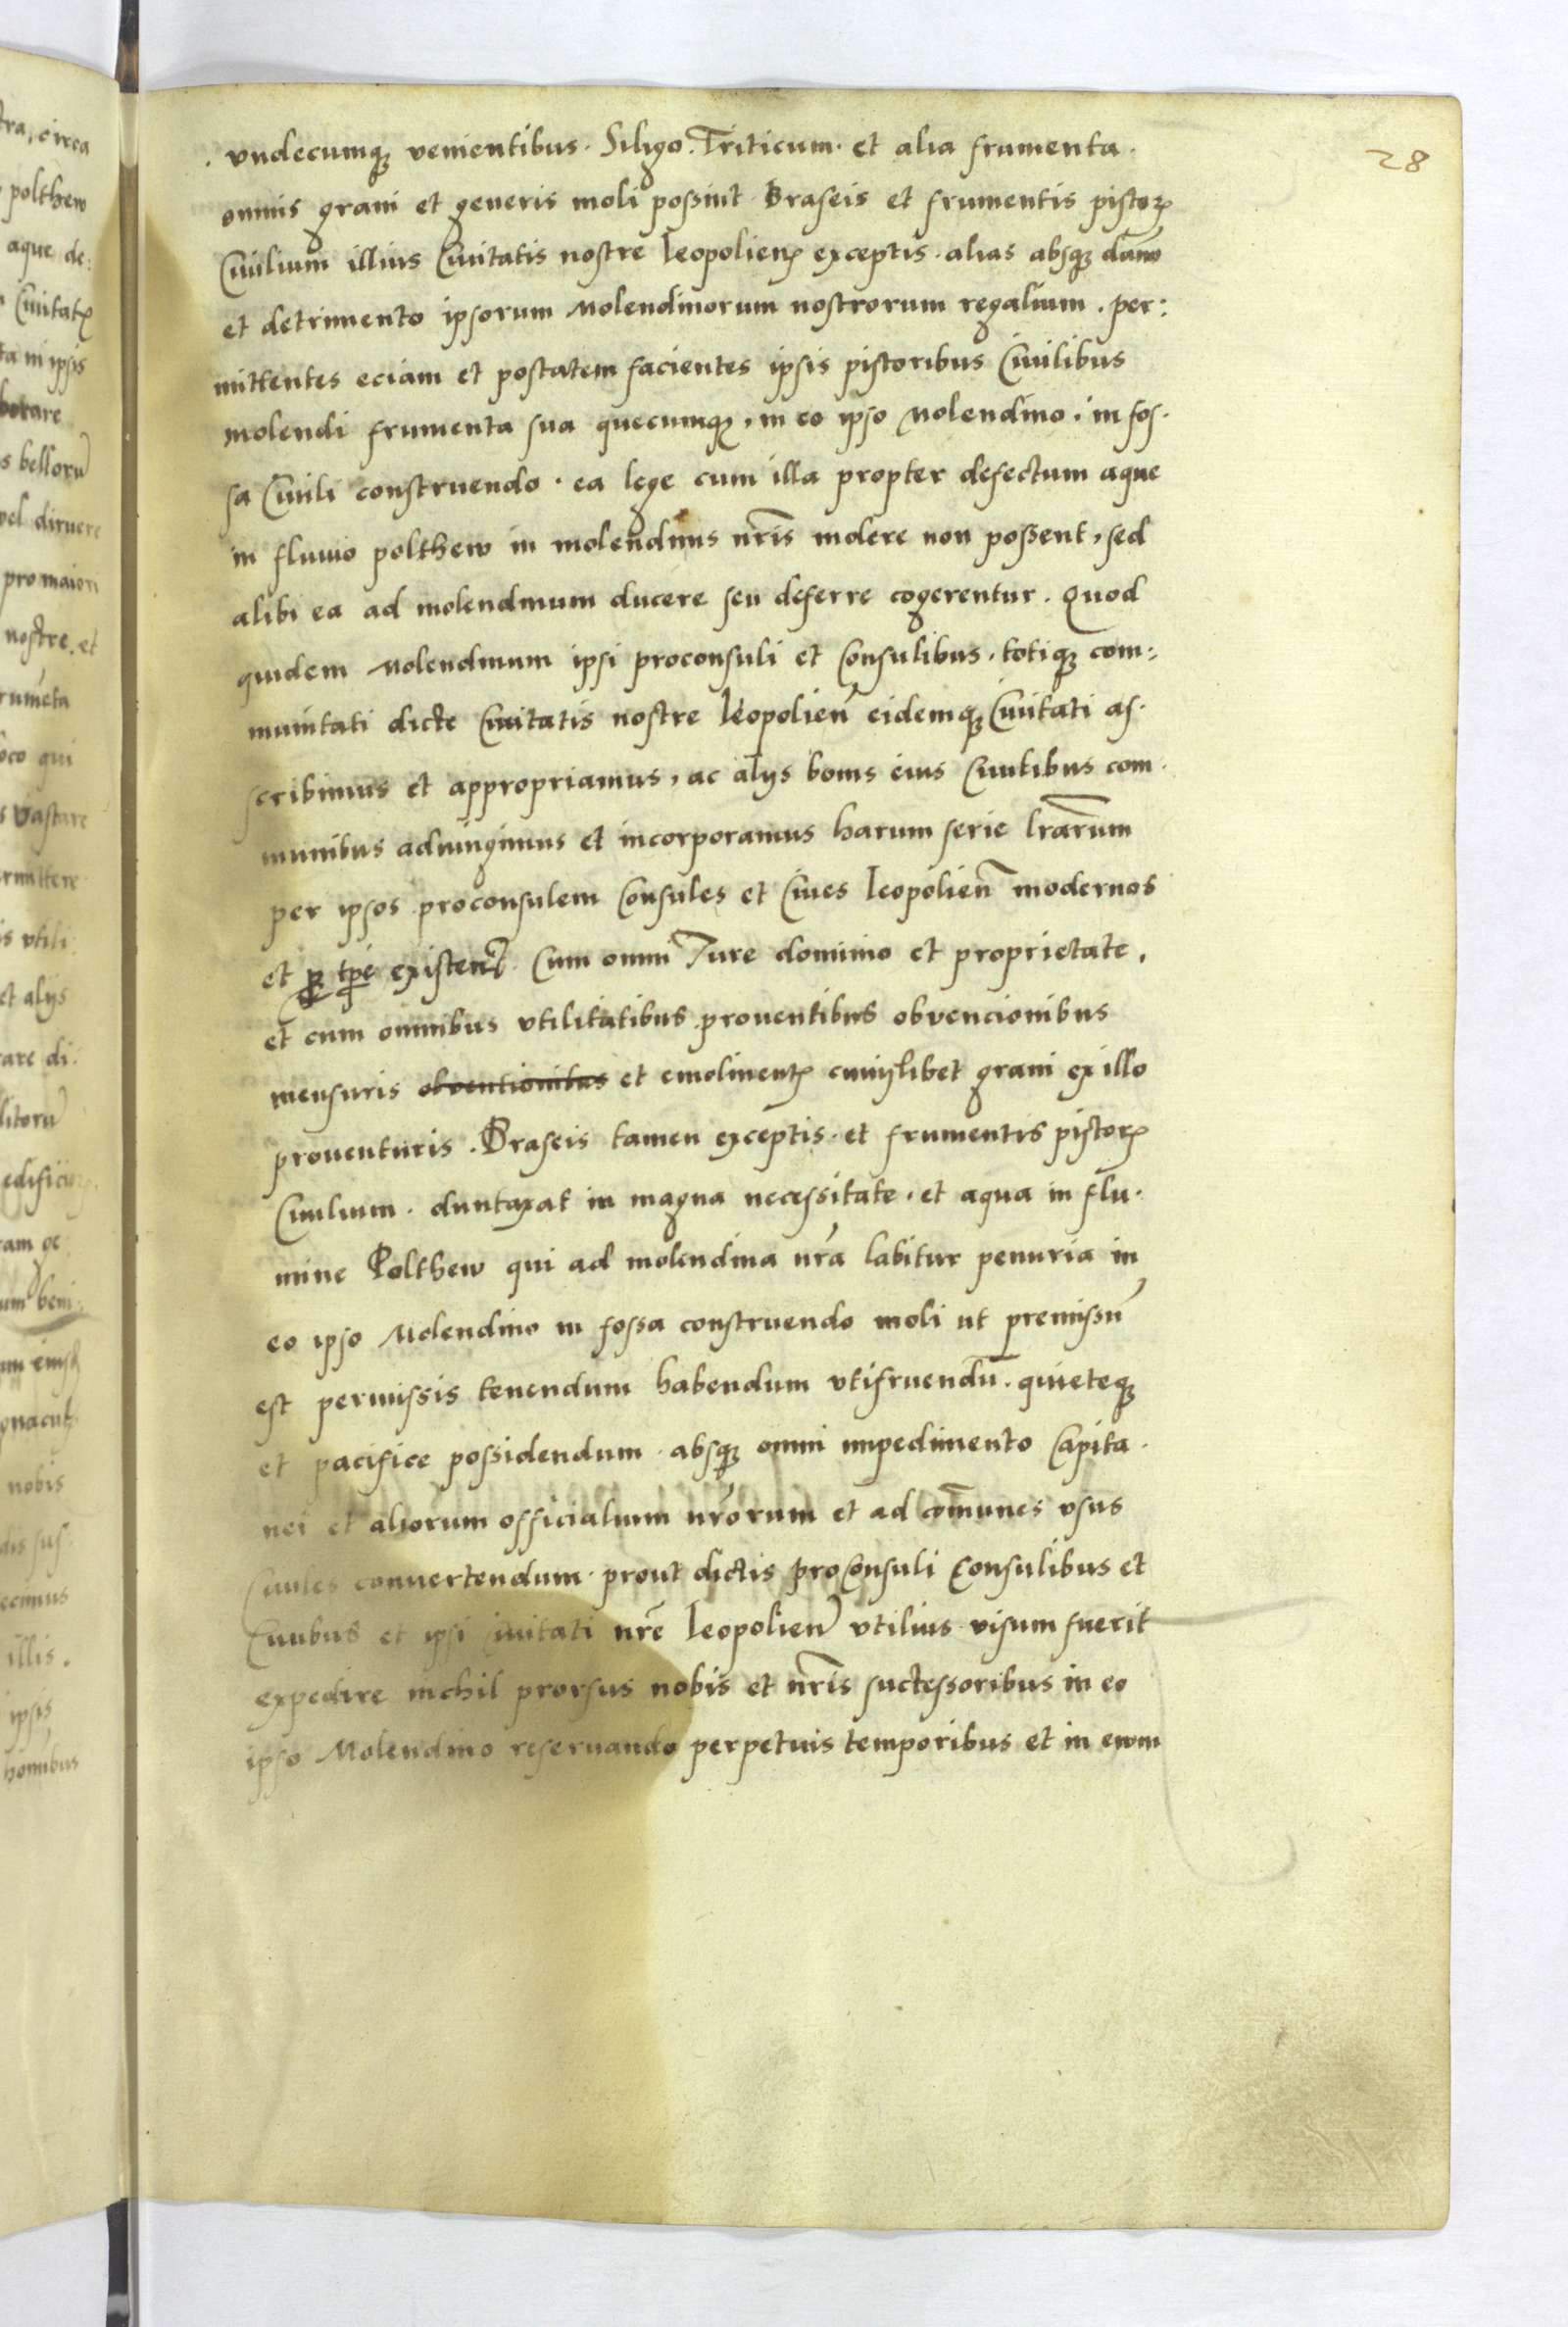 28
vndecumqꝫ venientibus. Siligo. Triticum. et alia frumenta.
omnis grani et generis moli possint Braseis et frumentis pistorꝝ
Ciuilium illius Ciuitatis nostre Leopolienꝭ exceptis. alias absqꝫ dāno
et detrimento ipsorum Molendinorum nostrorum regalium. per:
mittentes eciam et postatem facientes ipsis pistoribus Ciuilibus
molendi frumenta sua quecumqꝫ, in eo ipso Molendino. in fos.
sa Ciuili construendo. ea lege cum illa propter defectum aque
in fluuio polthew in molendinis nr̄is molere non possent, sed
alibi ea ad molendinum ducere seu deferre cogerentur. Quod
quidem Molendinum ipsi proconsuli et Consulibus. totiqꝫ com:
munitati dicte Ciuitatis nostre Leopolien̄ eidemqꝫ Ciuitati as.
scribimus et appropriamus, ac alijs bonis eius Ciuitibus com.
munibus adiungimus et incorporamus harum serie lr̄arum
per ipsos proconsulem Consules et Ciues Leopolien̄ modernos
et ꝓ tp̄e existen̄t. Cum omni Iure dominio et proprietate.
et cum omnibus vtilitatibus prouentibus obvencionibus
mensuris obventionibus et emolimentꝭ cuiuslibet grani ex illo
prouenturis. Braseis tamen exceptis. et frumentis pistorꝝ
Ciuilium. duntaxat in magna necessitate. et aqua in flu.
mine Polthew qui ad molendina nr̄a labitur penuria in
eo ipso Molendino in fossa construendo moli ut premissū
est permissis tenendum habendum vtifruendū. quieteqꝫ
et pacifice possidendum. absqꝫ omni impedimento Capita.
nei et aliorum officialium nr̄orum et ad com̄unes vsus
Ciuiles conuertendum. prout dictis proConsuli Consulibus et
Ciuibus et ipsi Ciuitati nr̄e Leopolien̄ vtilius visum fuerit
expedire nichil prorsus nobis et nr̄is suctessoribus in eo
ipso Molendino reseruando perpetuis temporibus et in ewm